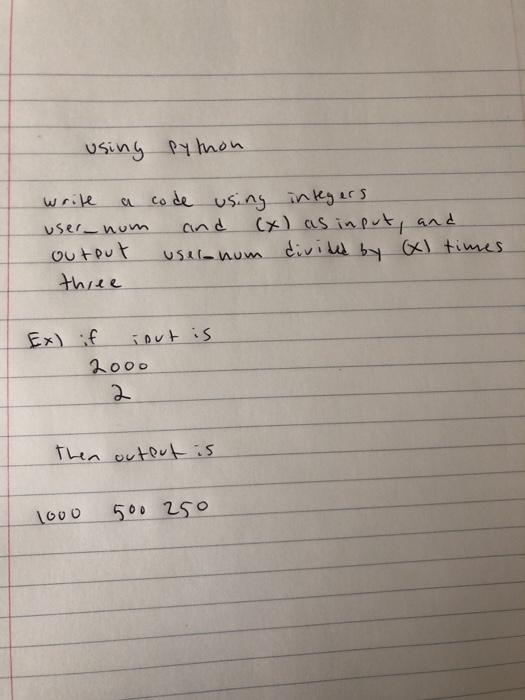 using python
write a code using integers
user_num and (x) as input, and
output user_num divided by (x) times
three
Ex) if iput is
2000
2
Then output is
1000 500 250